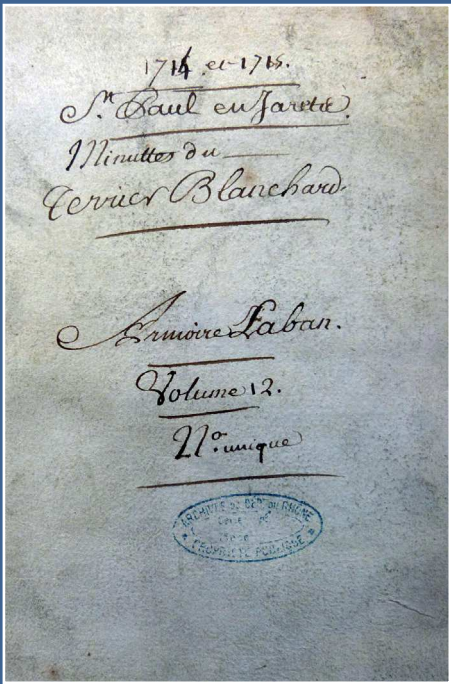 1714 et 1715.
St. Paul en Jaretz.
Minuttes du
Terrier Blanchard.
Armoire Laban.
Volume 12.
No. unique
ARCHIVES DU DÉPT DU RHÔNE
PROPRIÉTÉ PUBLIQUE